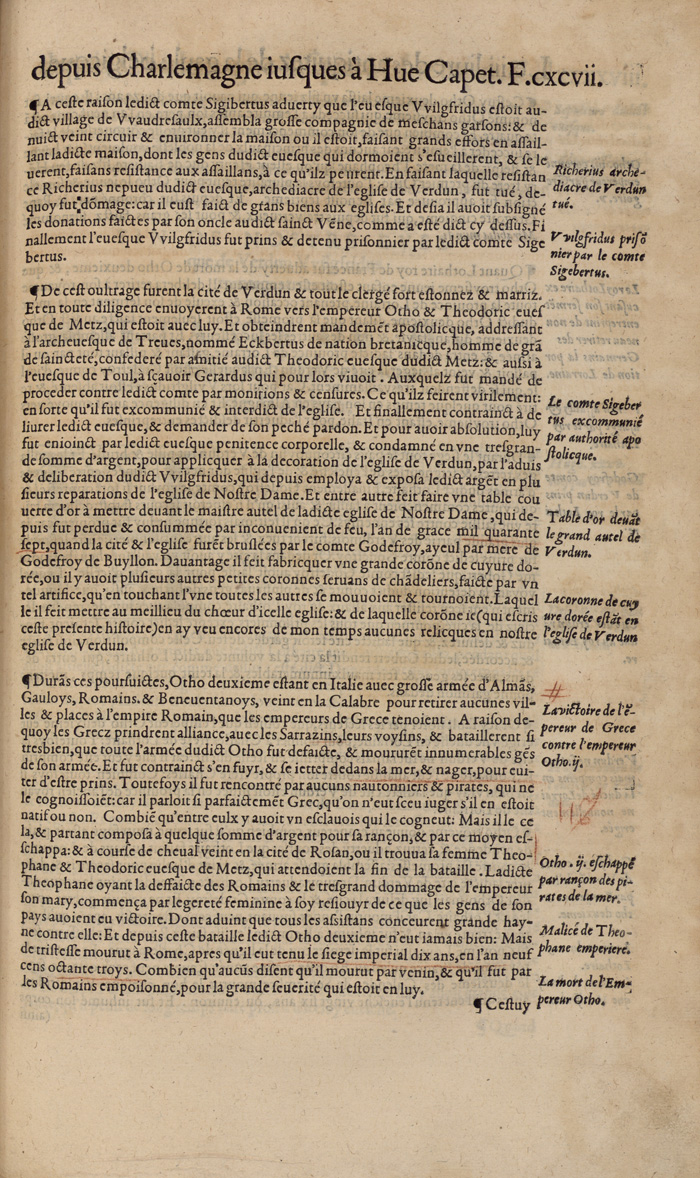 depuis Charlemagne iusques à Hue Capet. F.cxcvii.
¶A ceste raison ledict comte Sigibertus aduerty que l'euesque Vvilgfridus estoit au-
dict village de Vvaudresaulx, assembla grosse compagnie de meschans garsons: & de
nuict veint circuir & enuironner la maison ou il estoit, faisant grands effors en assail-
lant ladicte maison, dont les gens dudict euesque qui dormoient s'esueillerent, & se le
uerent, faisans resistance aux assaillans, à ce qu'ilz peurent. En faisant laquelle resistan
ce Richerius nepueu dudict euesque, archediacre de l'eglise de Verdun, fut tué, de-
quoy fut dōmage: car il eust faict de grans biens aux eglises. Et desia il auoit subsigné
les donations faictes par son oncle audict sainct Vēne, comme a esté dict cy dessus. Fi
nallement l'euesque Vvilgfridus fut prins & detenu prisonnier par ledict comte Sige
bertus.
Richerius arche-
diacre de Verdun
tué.
Vvilgfridus prisō
nier par le comte
Sigebertus.
¶De cest oultrage furent la cité de Verdun & tout le clergé fort estonnez & marriz.
Et en toute diligence enuoyerent à Rome vers l'empereur Otho & Theodoric eues
que de Metz, qui estoit auec luy. Et obteindrent mandemēt apostolicque, addressant
à l'archeuesque de Treues, nommé Eckbertus de nation bretanicque, homme de grā
de saincteté, confederé par amitié audict Theodoric euesque dudict Metz: & aussi à
l'euesque de Toul, à sçauoir Gerardus qui pour lors viuoit. Auxquelz fut mandé de
proceder contre ledict comte par monitions & censures. Ce qu'ilz feirent virilement:
en sorte qu'il fut excommunié & interdict de l'eglise. Et finallement contrainct à de
liurer ledict euesque, & demander de son peché pardon. Et pour auoir absolution, luy
fut enioinct par ledict euesque penitence corporelle, & condamné en vne tresgran-
de somme d'argent, pour applicquer à la decoration de l'eglise de Verdun, par l'aduis
& deliberation dudict Vvilgfridus, qui depuis employa & exposa ledict argēt en plu
sieurs reparations de l'eglise de Nostre Dame. Et entre autre feit faire vne table cou
uerte d'or à mettre deuant le maistre autel de ladicte eglise de Nostre Dame, qui de-
puis fut perdue & consummée par inconuenient de feu, l'an de grace mil quarante
sept, quand la cité & l'eglise furēt bruslées par le comte Godefroy, ayeul par mere de
Godefroy de Buyllon. Dauantage il feit fabricquer vne grande corōne de cuyure do-
rée, ou il y auoit plusieurs autres petites coronnes seruans de chādeliers, faicte par vn
tel artifice, qu'en touchant l'vne toutes les autres se mouuoient & tournoient. Laquel
le il feit mettre au meillieu du chœur d'icelle eglise: & de laquelle corōne ie (qui escris
ceste presente histoire) en ay veu encores de mon temps aucunes relicques en nostre
eglise de Verdun.
Le comte Sigeber
tus excommunié
par authorité apo
stolicque.
Table d'or deuāt
le grand autel de
Verdun.
La coronne de cuy
ure dorée estāt en
l'eglise de Verdun
¶Durās ces poursuictes, Otho deuxieme estant en Italie auec grosse armée d'Almās,
Gauloys, Romains. & Beneuentanoys, veint en la Calabre pour retirer aucunes vil-
les & places à l'empire Romain, que les empereurs de Grece tenoient. A raison de-
quoy les Grecz prindrent alliance, auec les Sarrazins, leurs voysins, & bataillerent si
tresbien, que toute l'armée dudict Otho fut defaicte, & moururēt innumerables gēs
de son armée. Et fut contrainct s'en fuyr, & se ietter dedans la mer, & nager, pour eui-
ter d'estre prins. Toutefoys il fut rencontré par aucuns nautonniers & pirates, qui ne
le cognoissoiēt: car il parloit si parfaictemēt Grec, qu'on n'eut sceu iuger s'il en estoit
natif ou non. Combiē qu'entre eulx y auoit vn esclauois qui le cogneut: Mais il le ce
la, & partant composa à quelque somme d'argent pour sa rançon, & par ce moyen es-
schappa: & à course de cheual veint en la cité de Rosan, ou il trouua sa femme Theo-
phane & Theodoric euesque de Metz, qui attendoient la fin de la bataille. Ladicte
Theophane oyant la deffaicte des Romains & le tresgrand dommage de l'empereur
son mary, commença par legereté feminine à soy resiouyr de ce que les gens de son
pays auoient eu victoire. Dont aduint que tous les assistans conceurent grande hay-
ne contre elle: Et depuis ceste bataille ledict Otho deuxieme n'eut iamais bien: Mais
de tristesse mourut à Rome, apres qu'il eut tenu le siege imperial dix ans, en l'an neuf
cens octante troys. Combien qu'aucūs disent qu'il mourut par venin, & qu'il fut par
les Romains empoisonné, pour la grande seuerité qui estoit en luy.
La victoire de l'ē-
pereur de Grece
contre l'empereur
Otho.ij.
Otho.ij. eschappé
par rançon des pi-
rates de la mer.
Malice de Theo-
phane emperiere.
La mort de l'Em-
pereur Otho.
¶Cestuy